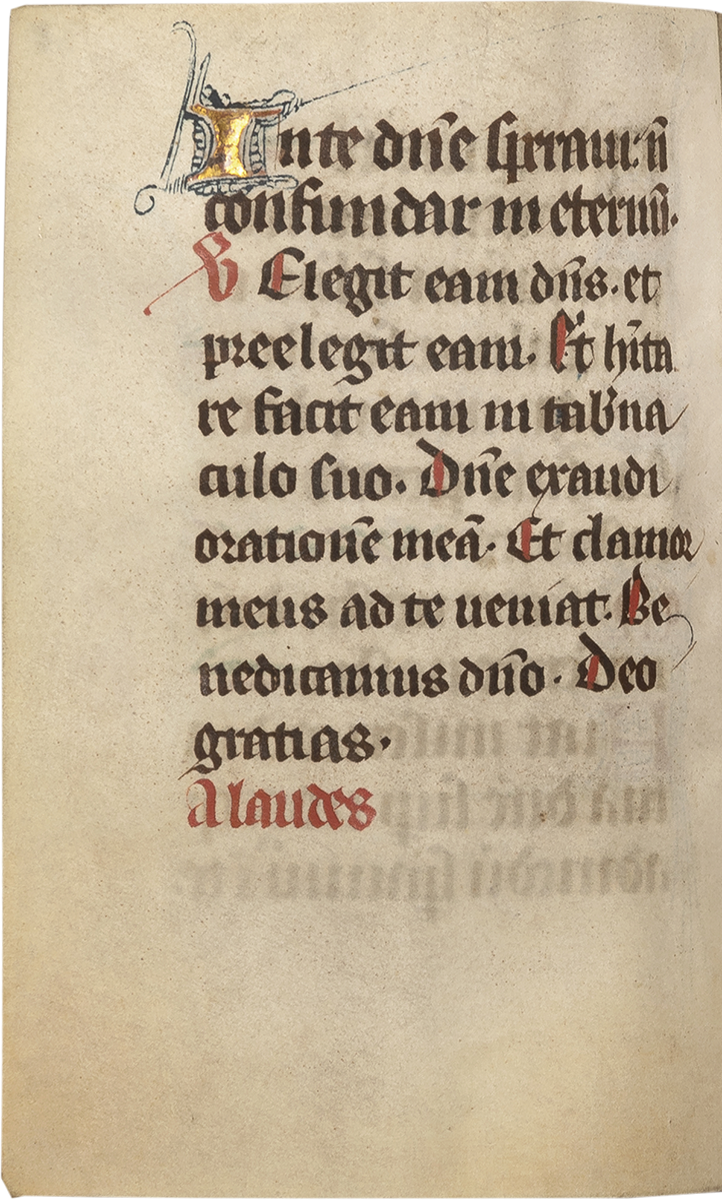 Inte dn̄e speraui: n̄
confundar in eternū.
V Elegit eam dn̄s. et
preelegit eam. Et hīta
re facit eam in tab̄na
culo suo. Dn̄e exaudi
orationē meā. Et clamor
meus ad te veniat. Be
nedicamus dn̄o. Deo
gratias.
A laudes